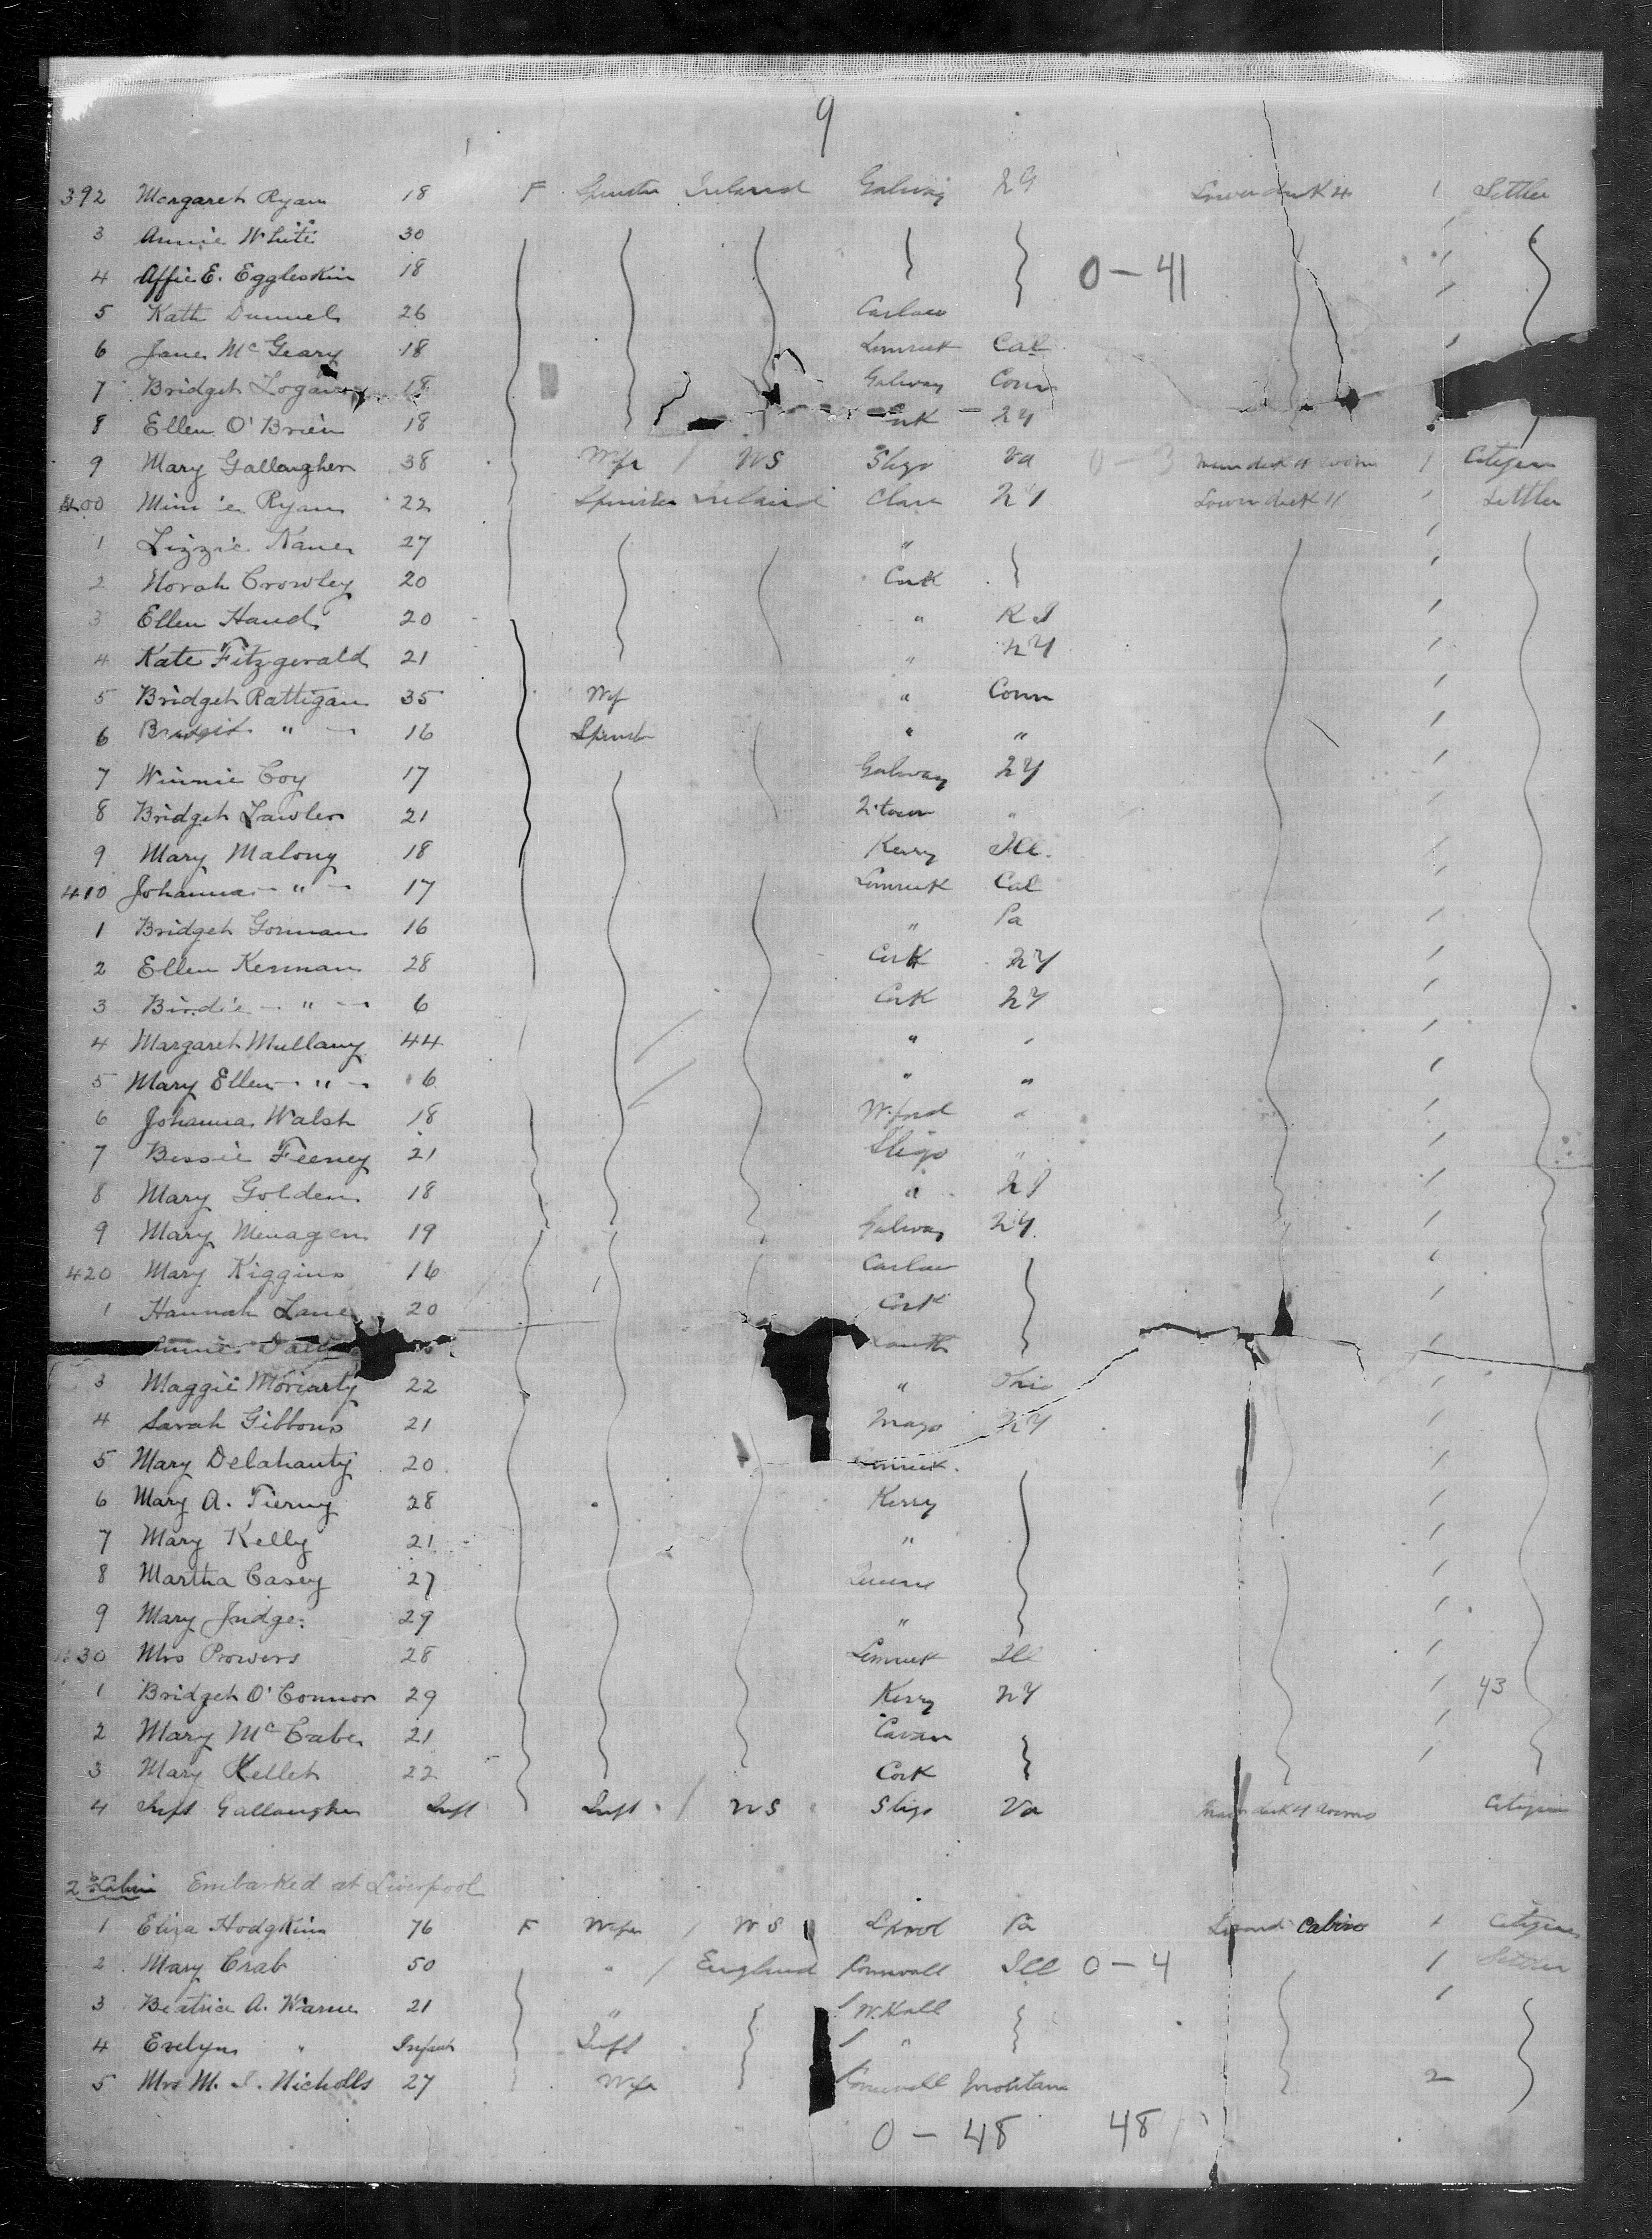 9
392 Margaret Ryan 18 F Spinster Ireland Galway NY Lower deck 4 1 Settler
3 Annie White 30
4 Affie E. Eggleskin 18 0 - 41
5 Kath 26 Carlow
6 Jane McGeary 18 Limrick Cal
7 Bridget Logan 18 Galway Conn
8 Ellen O'Brien 18 Cork NY
9 Mary Gallaugher 38 Wife / US Sligo Va 0 - 3 1 Citizen
400 Minnie Ryan 22 Spinster Ireland Clare NY Lower deck Settler
1 Lizzie Kane 27 "
2 Norah Crowley 20 Cork
3 Ellen Hand 20 " RI
4 Kate Fitzgerald 21 " NY
5 Bridget Rattigan 35 Wf " Conn
6 Bridget - " - 16 Spinst " "
7 Winnie Coy 17 Galway NY
8 Bridget Lawler 21 Q.town "
9 Mary Malony 18 Kerry Ill.
410 Johanna - " - 17 Limrick Cal
1 Bridget Gorman 16 " Pa
2 Ellen Kernan 28 Cork NY
3 Birdie - " - 6 Cork NY
4 Margaret Mullany 44 " "
5 Mary Ellen - " - 6 " "
6 Johanna Walsh 18 W.ford "
7 Bessie Feeney 21 Sligo "
8 Mary Golden 18 "
9 Mary Menagen 19 Galway NY
420 Mary Kiggins 16 Carlow
1 Hannah Lane 20 Cork
Louth
3 Maggie Moriarty 22 " Ohio
4 Sarah Gibbons 21 Mayo NY
5 Mary Delahanty 20 Limrick
6 Mary A. Tierny 28 Kerry
7 Mary Kelly 21 "
8 Martha Casey 27 Queens
9 Mary Judge 29 "
430 Mrs Powers 28 Limrick Ill
1 Bridget O'Connor 29 Kerry NY 43
2 Mary McCabe 21 Cavan
3 Mary Kellet 22 Cork
4 Inft Gallaugher Inft Inft / US Sligo Va Main deck 4 rooms Citizen
2nd Cabin Embarked at Liverpool
1 Eliza Hodgkins 76 F Wife / US L'pool Pa Second Cabin 1 Citizen
2 Mary Crab 50 " / England Cornwall Ill 0 - 4 1 Settler
3 Beatrice A. Warne 21 " W.Hall 1
4 Evelyn " Infant Inft "
5 Mrs M. J. Nicholls 27 Wife Cornwall Montana 2
0 - 48 48